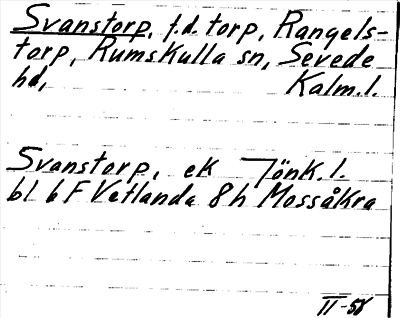 Svanstorp, f.d. torp, Rangels-
torp, Rumskulla sn, Sevede
hd, Kalm.l.
Svanstorp, ek Jönk.l.
bl 6 F Vetlanda 8h Mossåkra
II-58